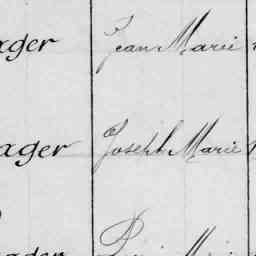 ager Jean Marie
ager Joseph Marie
Marie